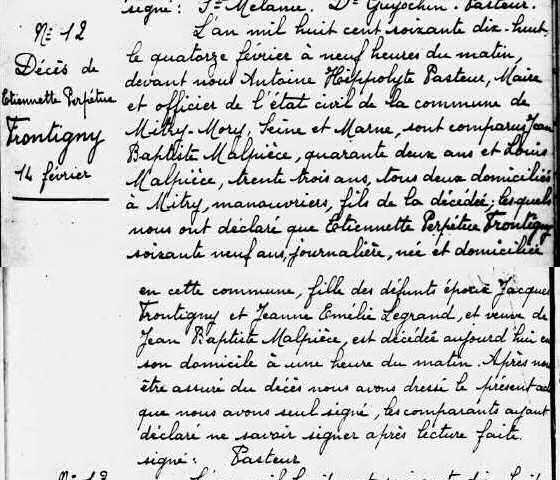 signé: Ste Mélanie. Dr Guyochin. Pasteur.
N° 12
Décès de
Etiennette Perpétue
Frontigny
14 février
L'an mil huit cent soixante dix-huit,
le quatorze février à neuf heures du matin,
devant nous Antoine Hippolyte Pasteur, Maire
et officier de l'état civil de la commune de
Mitry-Mory, Seine et Marne, sont comparus Jean
Baptiste Malpièce, quarante deux ans et Louis
Malpièce, trente trois ans, tous deux domiciliés
à Mitry, manouvriers, fils de la décédée; lesquels
nous ont déclaré que Etiennette Perpétue Frontigny
soixante neuf ans, journalière, née et domiciliée
en cette commune, fille des défunts époux Jacques
Frontigny et Jeanne Emélie Legrand, et veuve de
Jean Baptiste Malpièce, est décédée aujourd'hui en
son domicile à une heure du matin. Après nous
être assuré du décès nous avons dressé le présent acte
que nous avons seul signé, les comparants ayant
déclaré ne savoir signer après lecture faite.
signé: Pasteur
N° 13
L'an mil huit cent soixante dix-huit